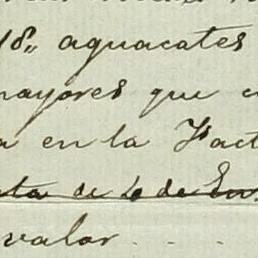 18,, aguacates
mayores que
a en la Fact
ta de 4 de En
valor . . .